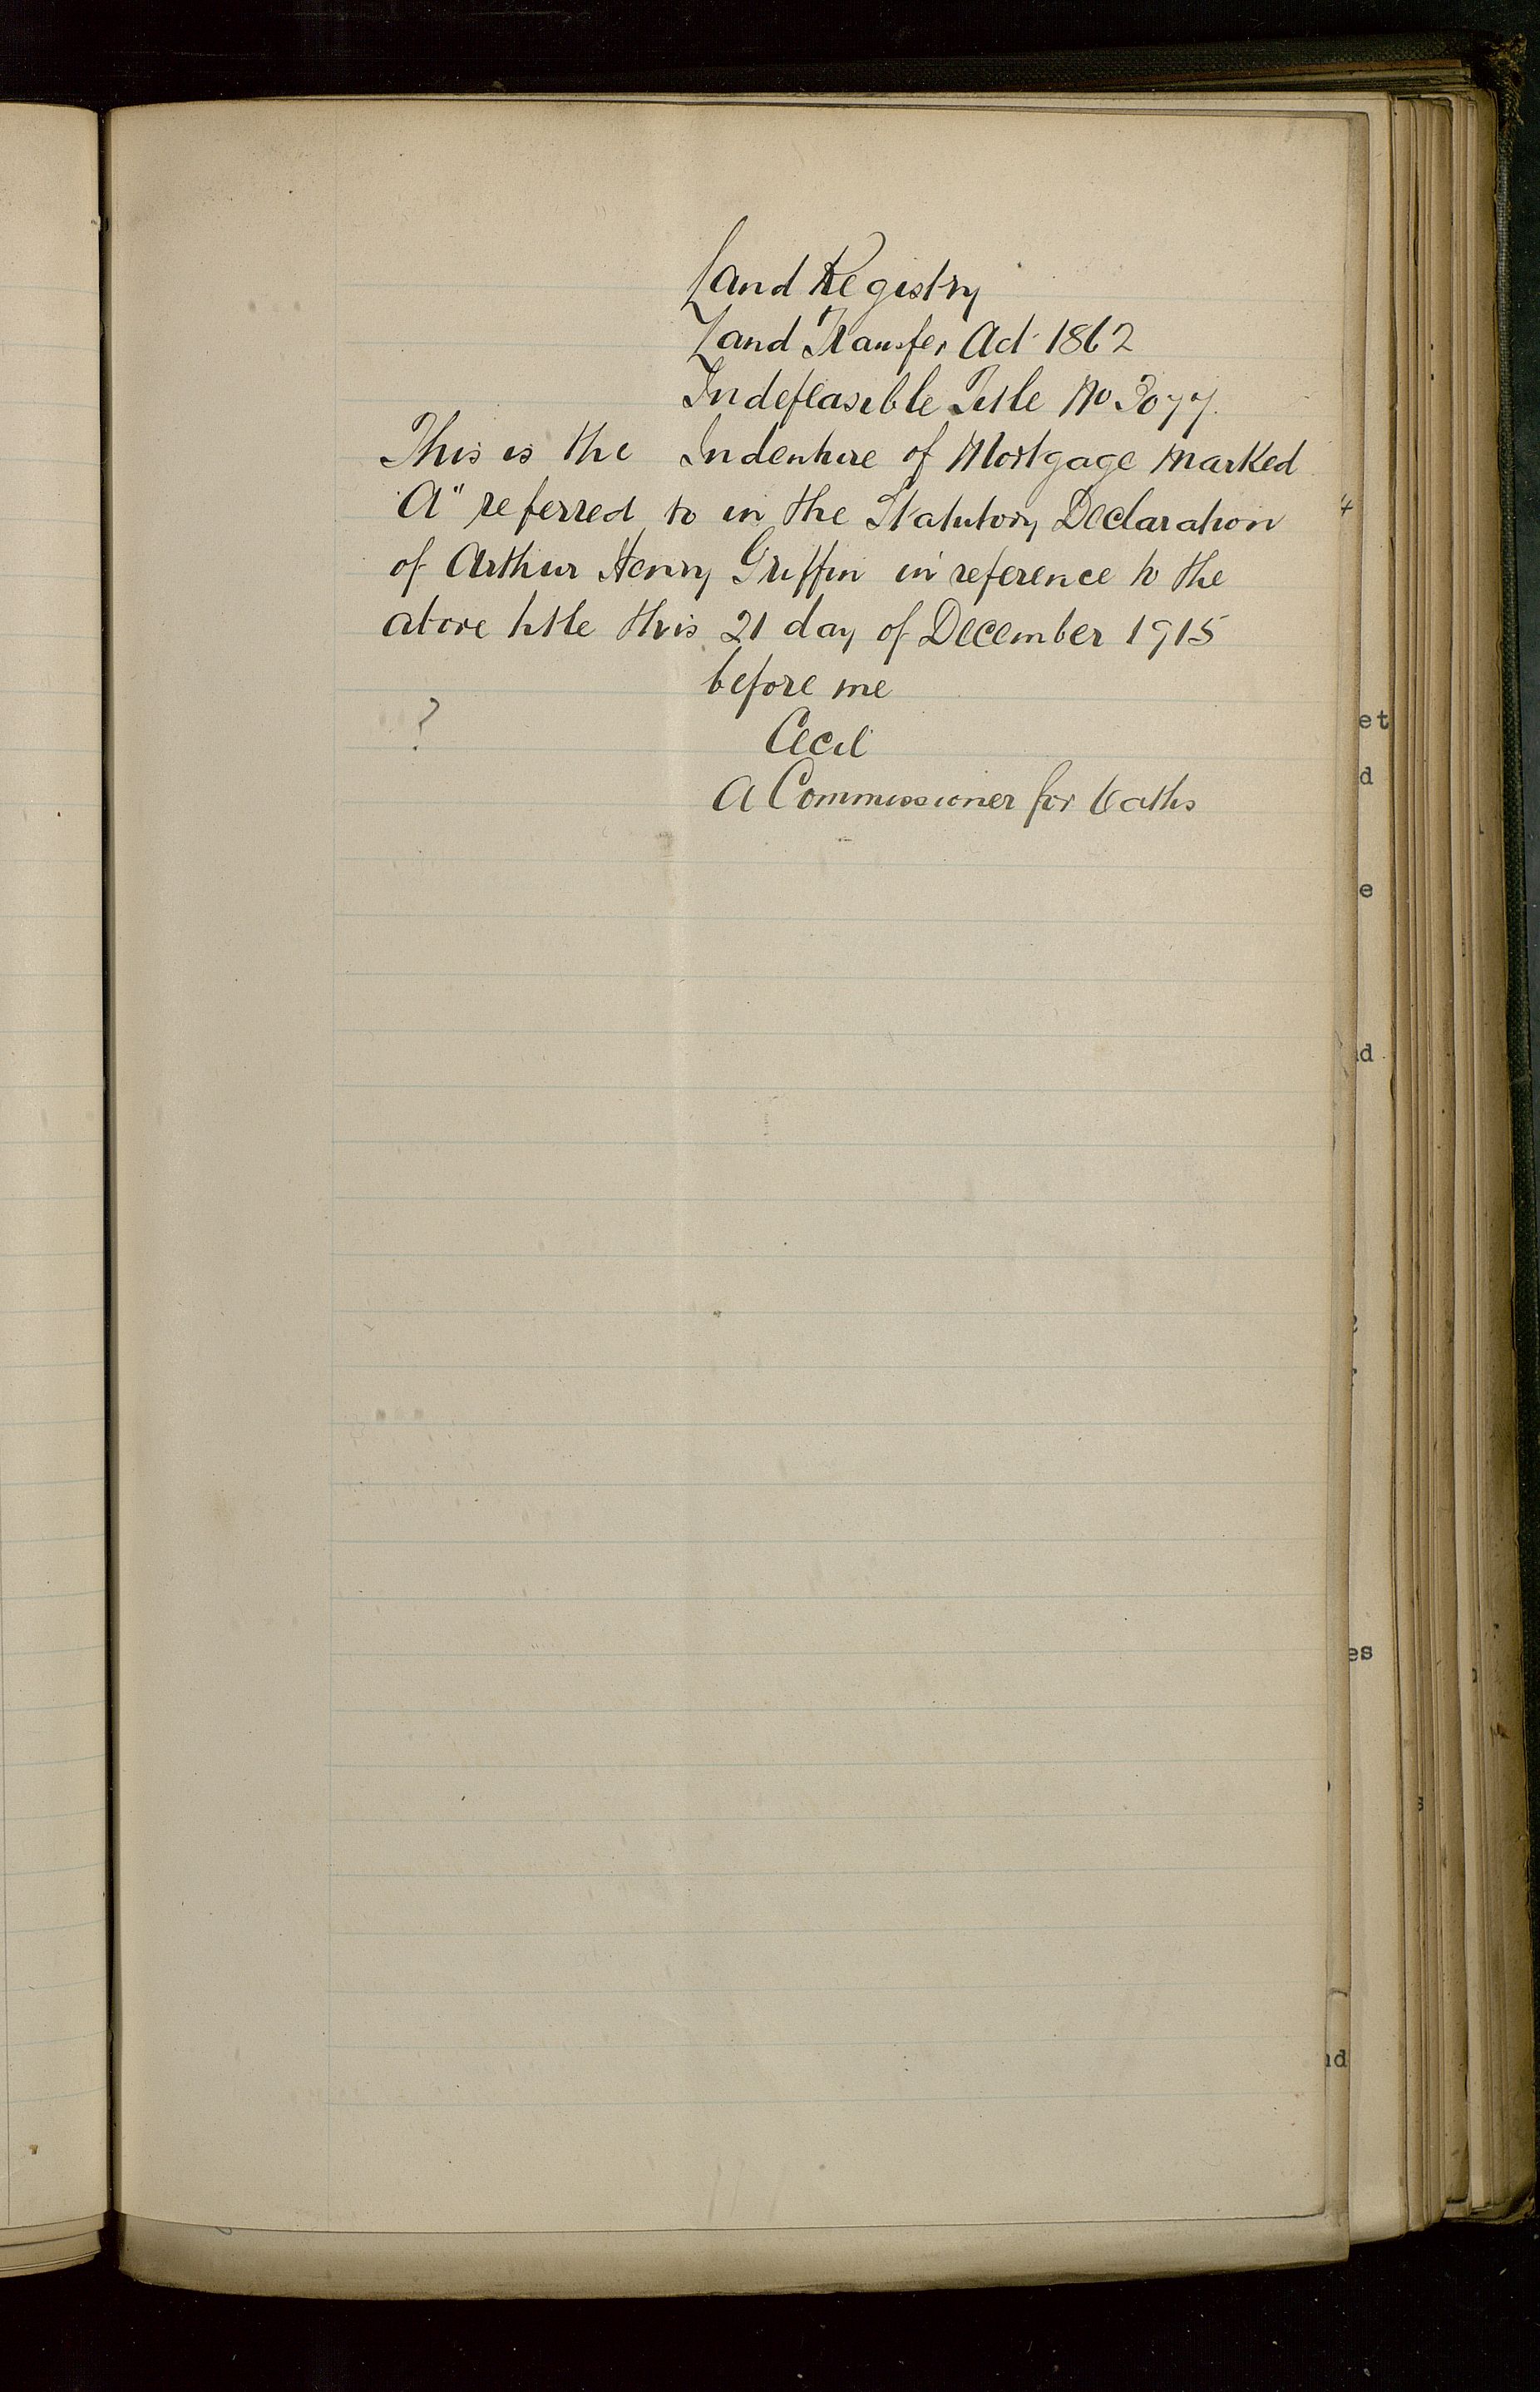 Land Registry
Land Transfer Act 1862
Indefeasible Title No 3077.
This is the Indenture of Mortgage marked
"A" referred to in the Statutory Declaration
of Arthur Henry Griffin in reference to the
above title this 21 day of December 1915
before me
?
Cecil
A Commissioner for Oaths
et
d
e
d
es
nd